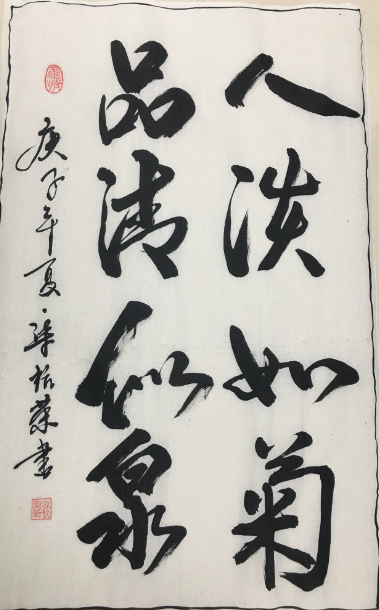 人淡如菊
品清似泉
庚子年夏·梁栢荣書